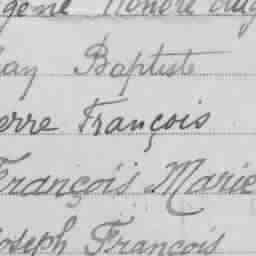 gène Honoré Aug
an Baptiste
erre François
François Marie
oseph François